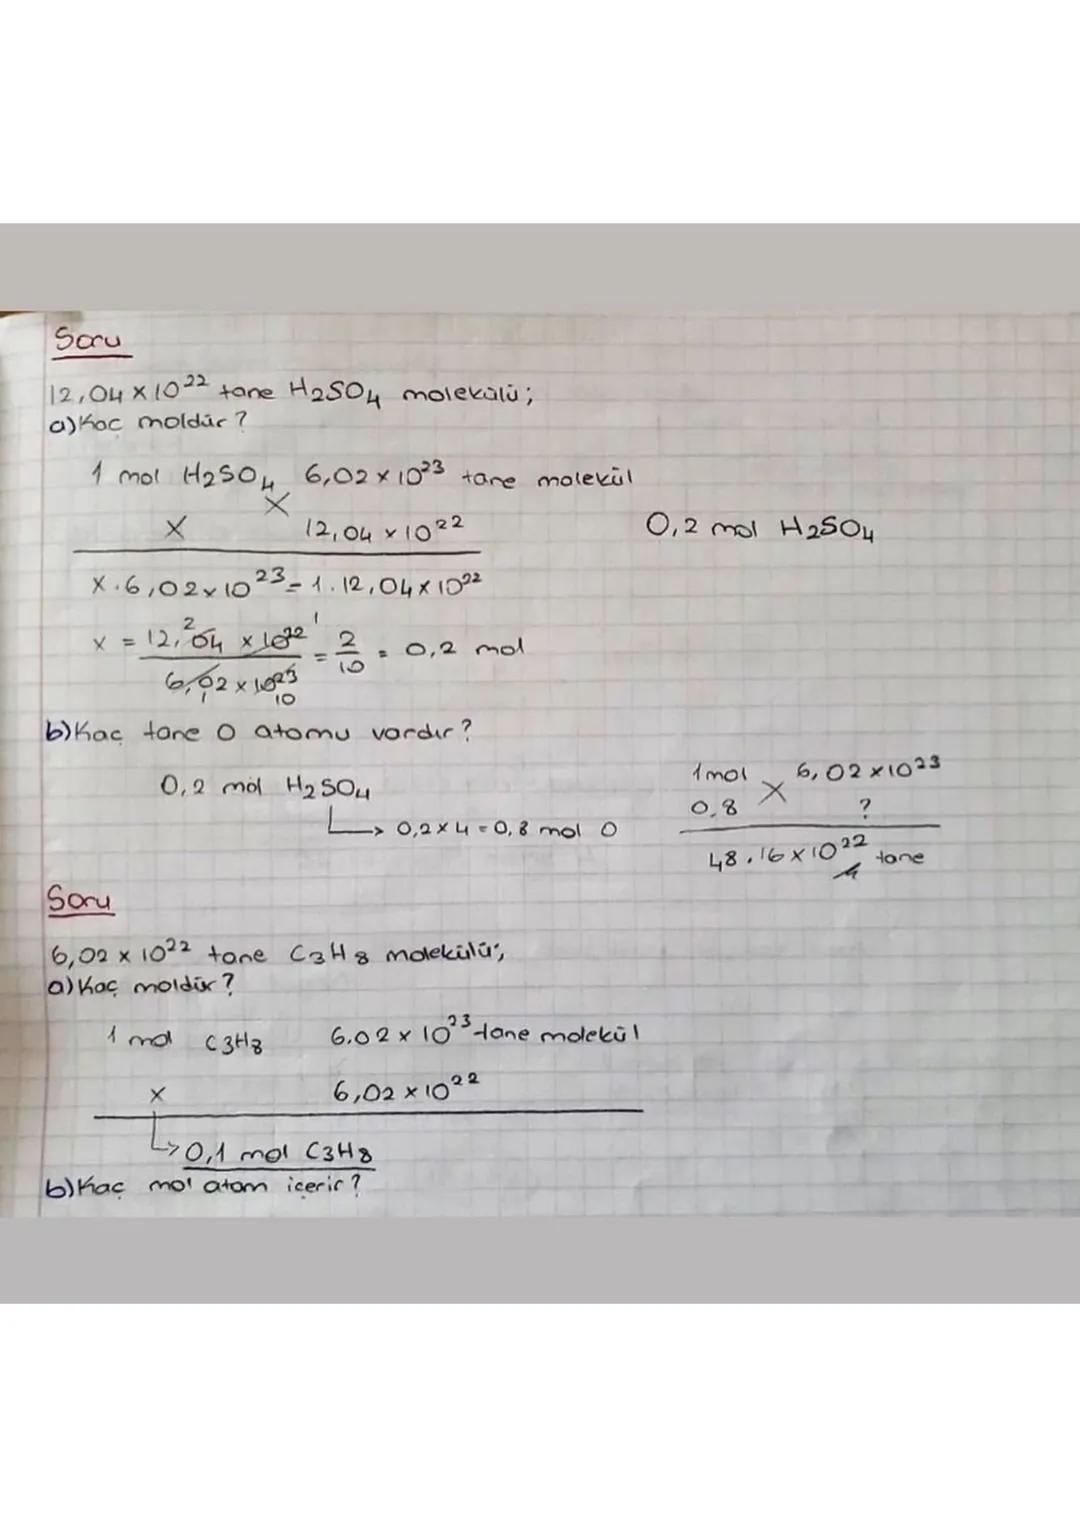 Soru
12,04 x 10²² tane H₂SO₄ molekülü;
a) Kaç moldür?
1 mol H₂SO₄ 6,02 x 10²³ tane molekül
X 12,04 x 10²²
0,2 mol H₂SO₄
X . 6,02 x 10²³ = 1 . 12,04 x 10²²
x = 12,04 x 10²² / 6,02 x 10²³ = 2/10 = 0,2 mol
b) Kaç tane O atomu vardır?
0,2 mol H₂SO₄
↳ 0,2 x 4 = 0,8 mol O
1 mol 6,02 x 10²³
0,8 ?
48.16 x 10²² tane
Soru
6,02 x 10²² tane C₃H₈ molekülü;
a) Kaç moldür?
1 mol C₃H₈ 6.02 x 10²³ tane molekül
x 6,02 x 10²²
↳ 0,1 mol C₃H₈
b) Kaç mol atom içerir?